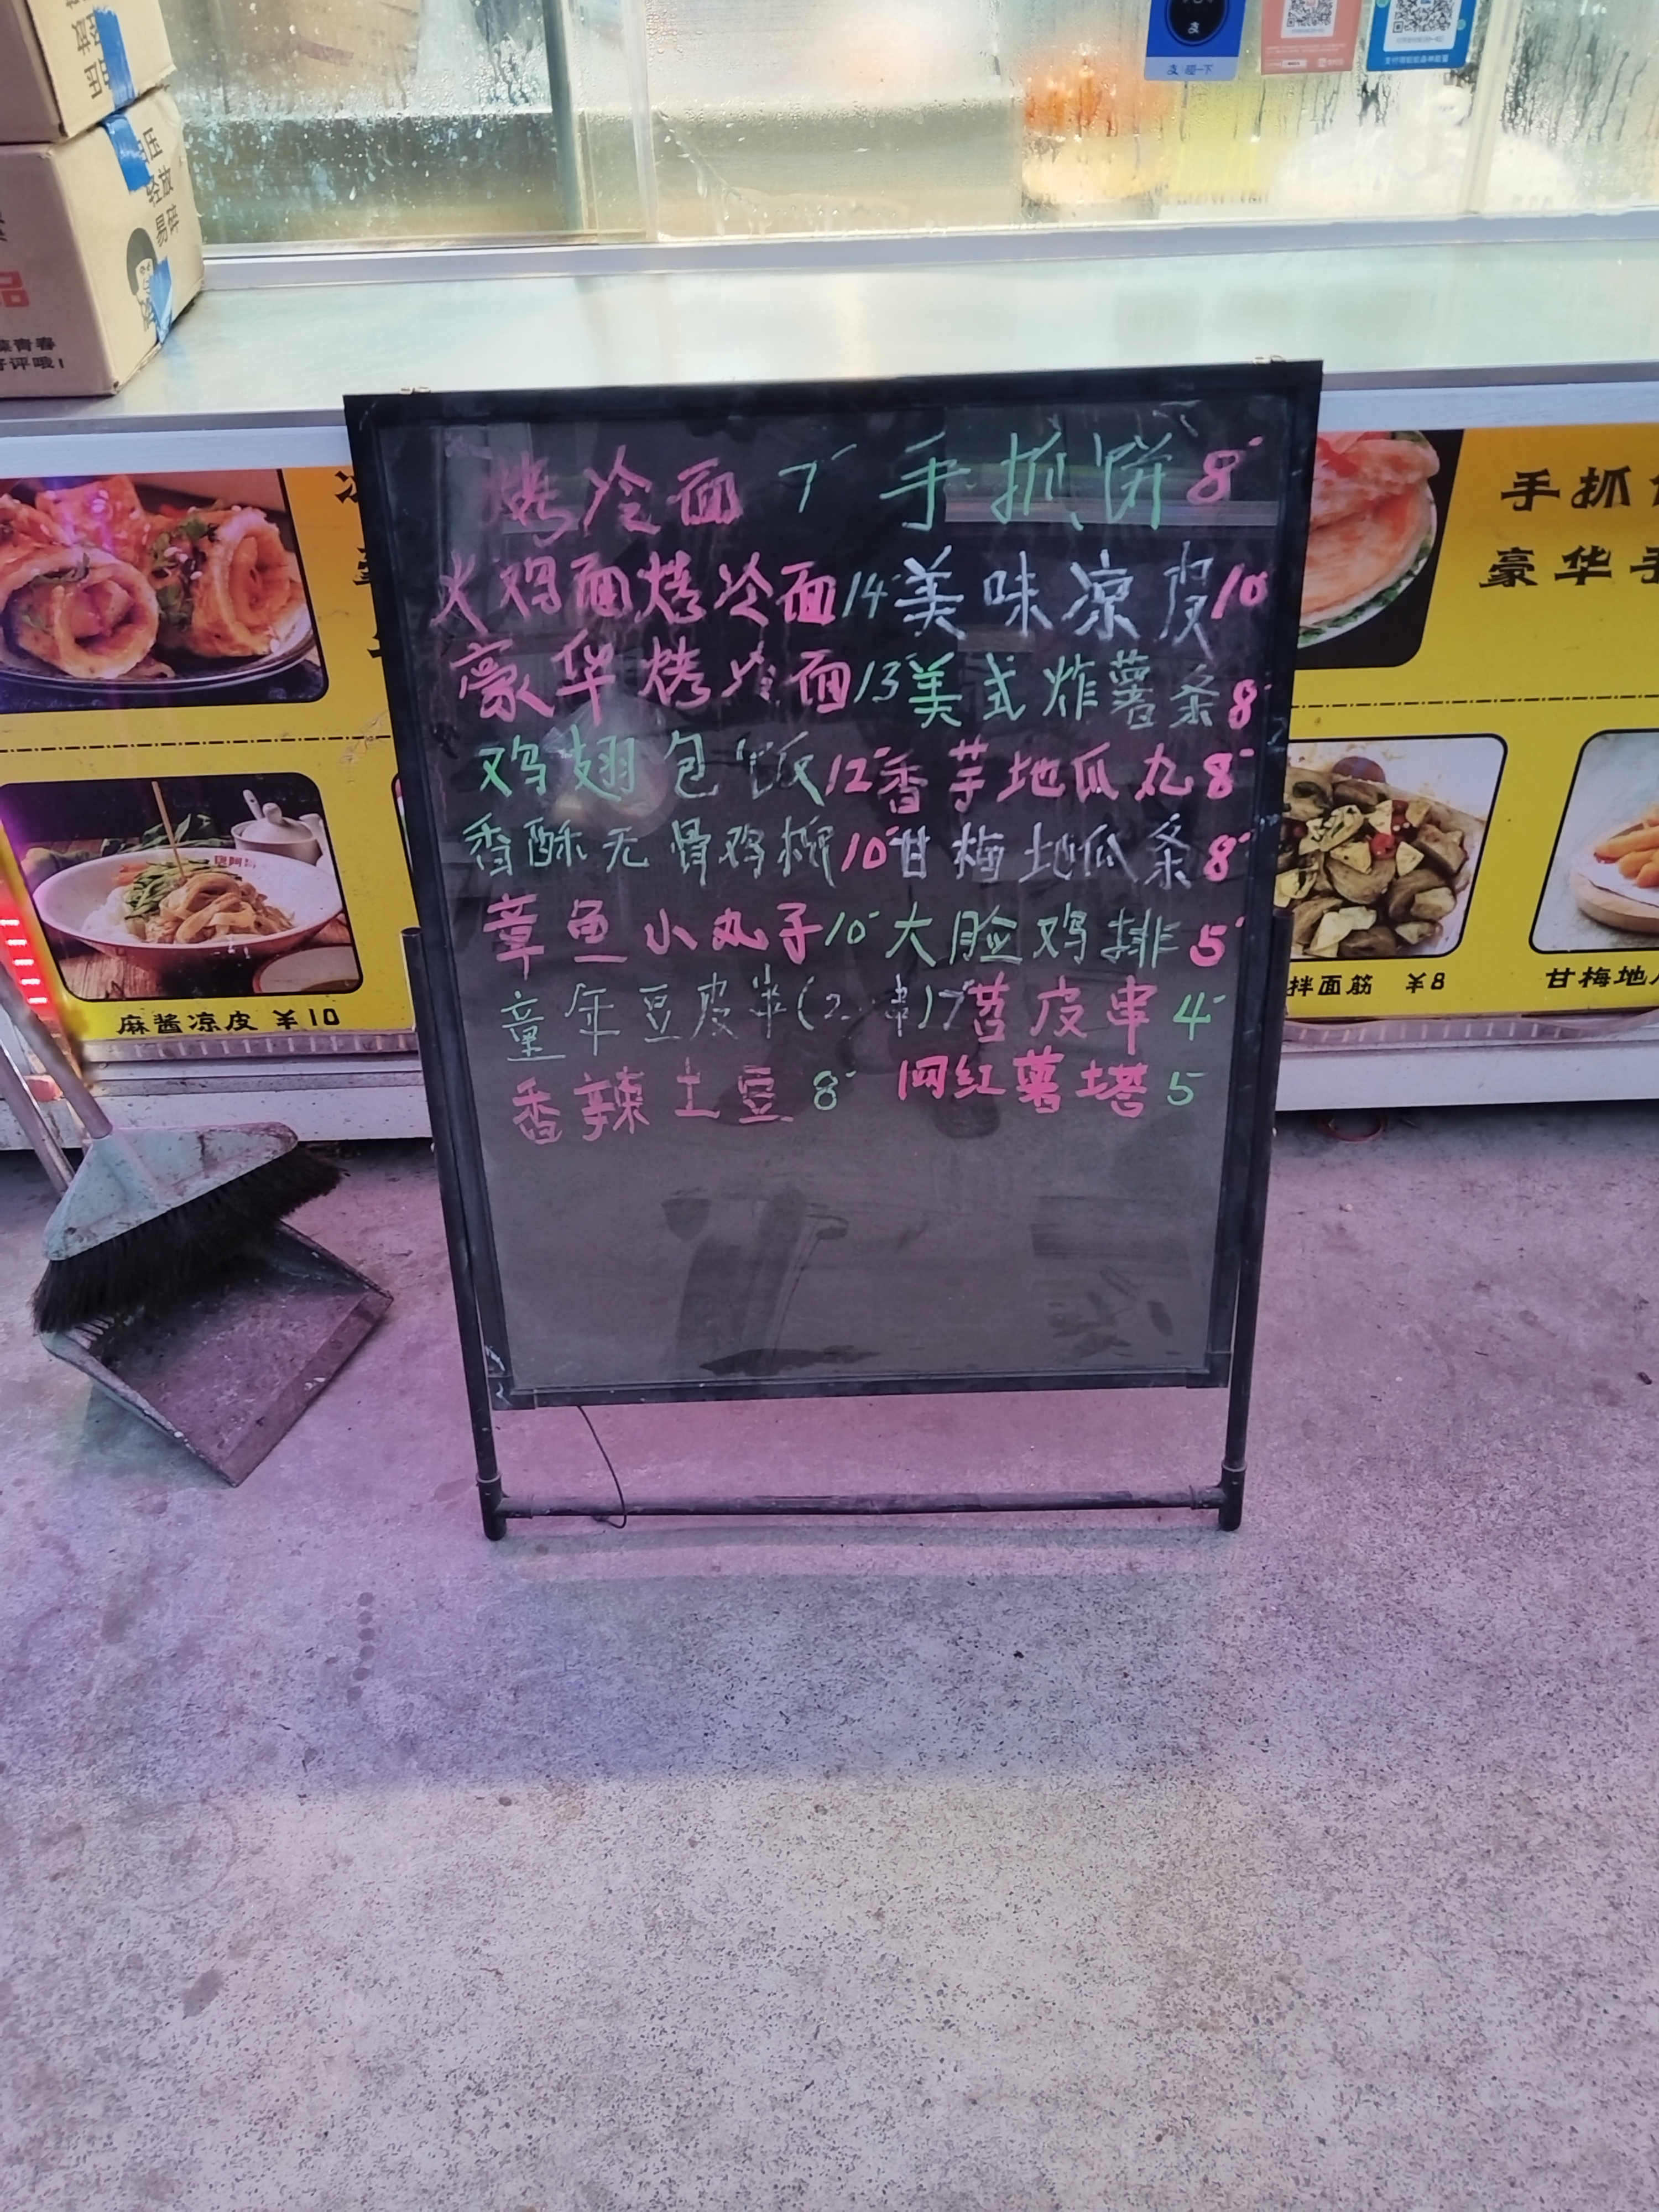 压
轻放
易碎
品
辣青春
好评哦!
支 碰一下
烤冷面 7 手抓饼 8
火鸡面烤冷面 14 美味凉皮 10
豪华烤冷面 13 美式炸薯条 8
鸡翅包饭 12 香芋地瓜丸 8
香酥无骨鸡柳 10 甘梅地瓜条 8
章鱼小丸子 10 大脸鸡排 5
童年豆皮串(2串)7 苕皮串 4
香辣土豆 8 网红薯塔 5
手抓
豪华手
麻酱凉皮 ¥10
拌面筋 ¥8
甘梅地